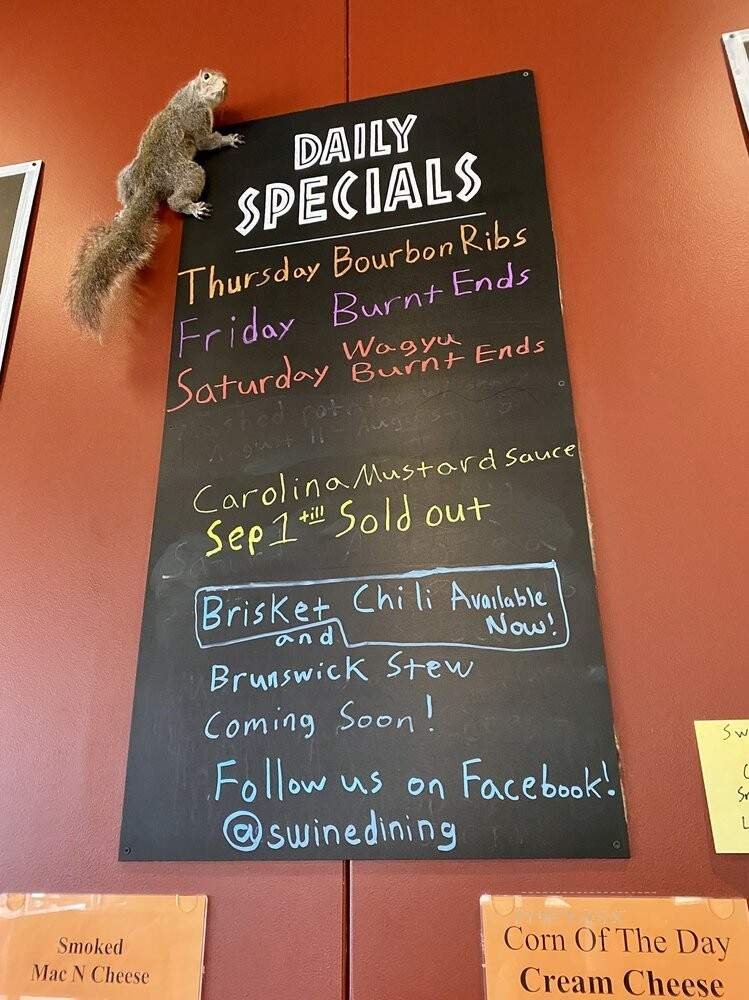 DAILY
SPECIALS
Thursday Bourbon Ribs
Friday Burnt Ends
Saturday Wagyu
Burnt Ends
Carolina Mustard Sauce
Sep 1 till Sold out
Brisket Chili Available
Now!
and
Brunswick Stew
Coming Soon!
Follow us on Facebook!
@swinedining
Smoked
Mac N Cheese
Corn Of The Day
Cream Cheese